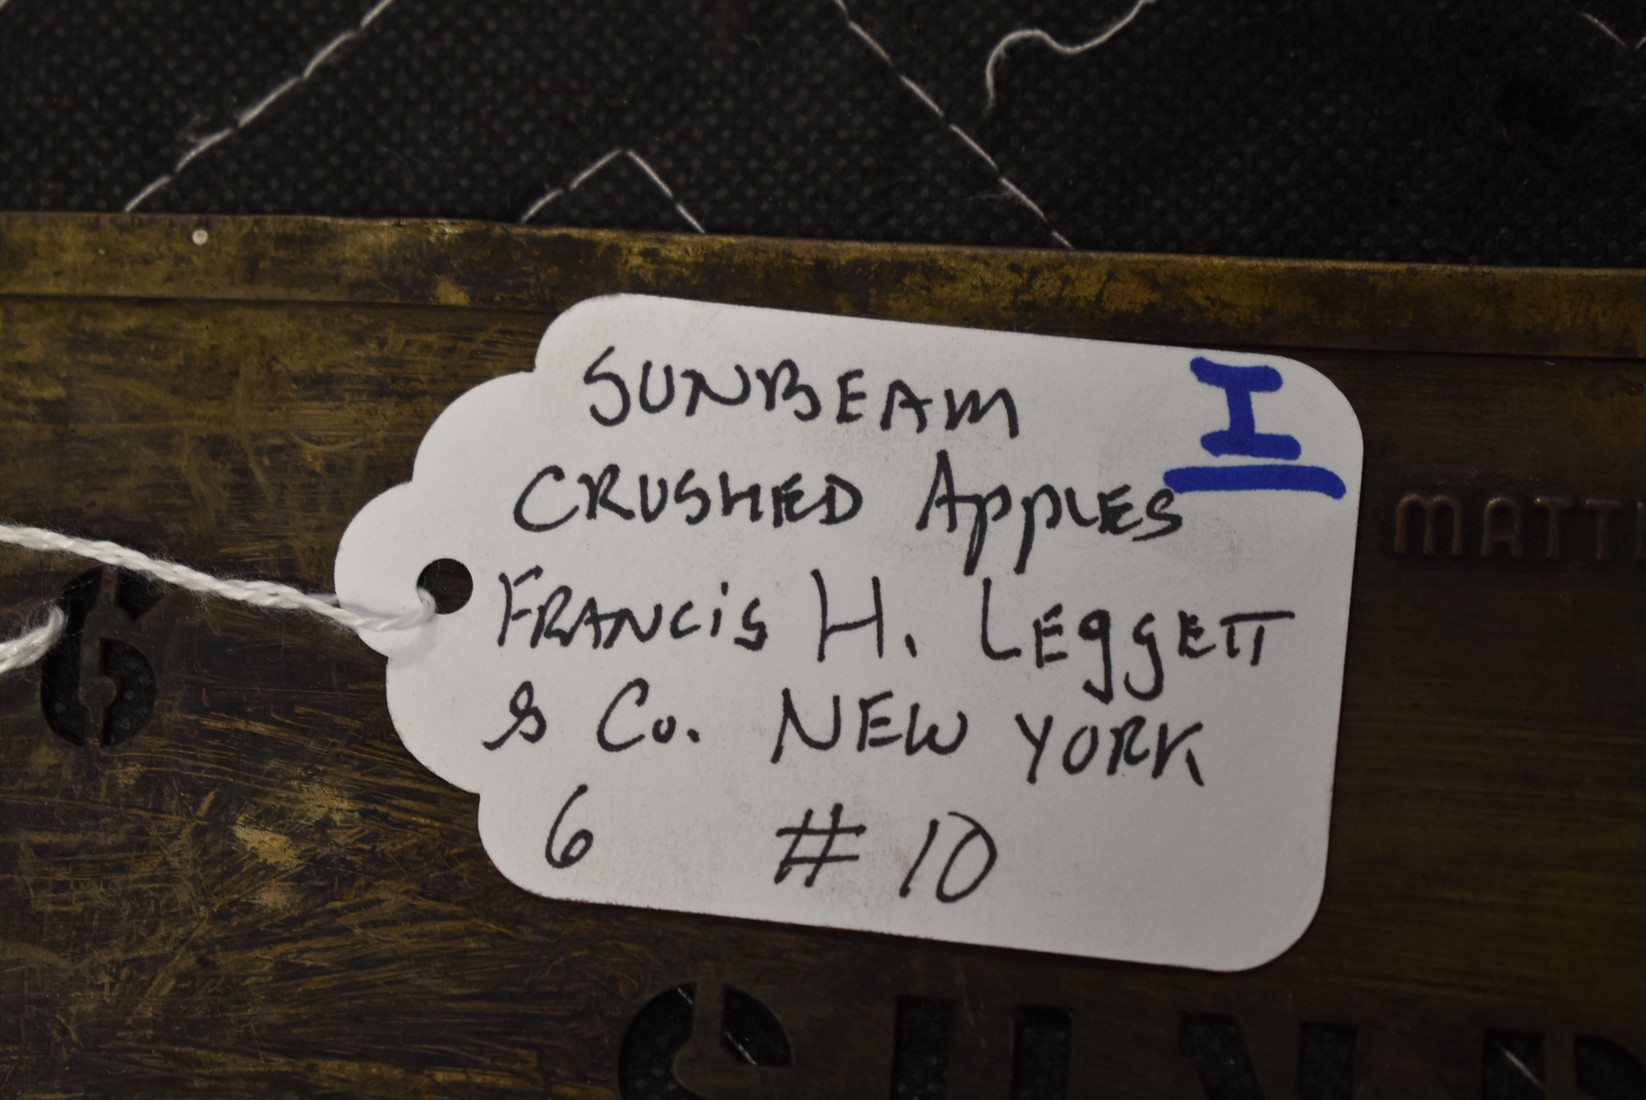 SUNBEAM
I
CRUSHED Apples
FRANCIS H. LEGGETT
& Co. NEW YORK
6 # 10
6